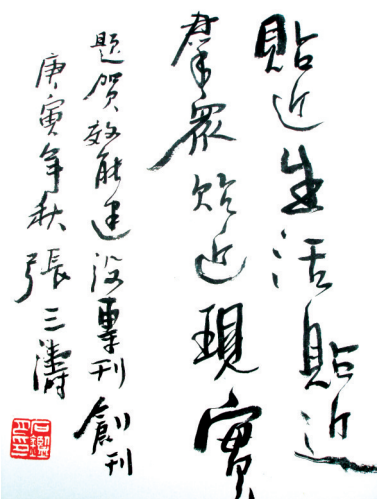 貼近生活貼近
羣眾貼近現實
题贺效能建设專刊創刊
庚寅年秋 張三濤